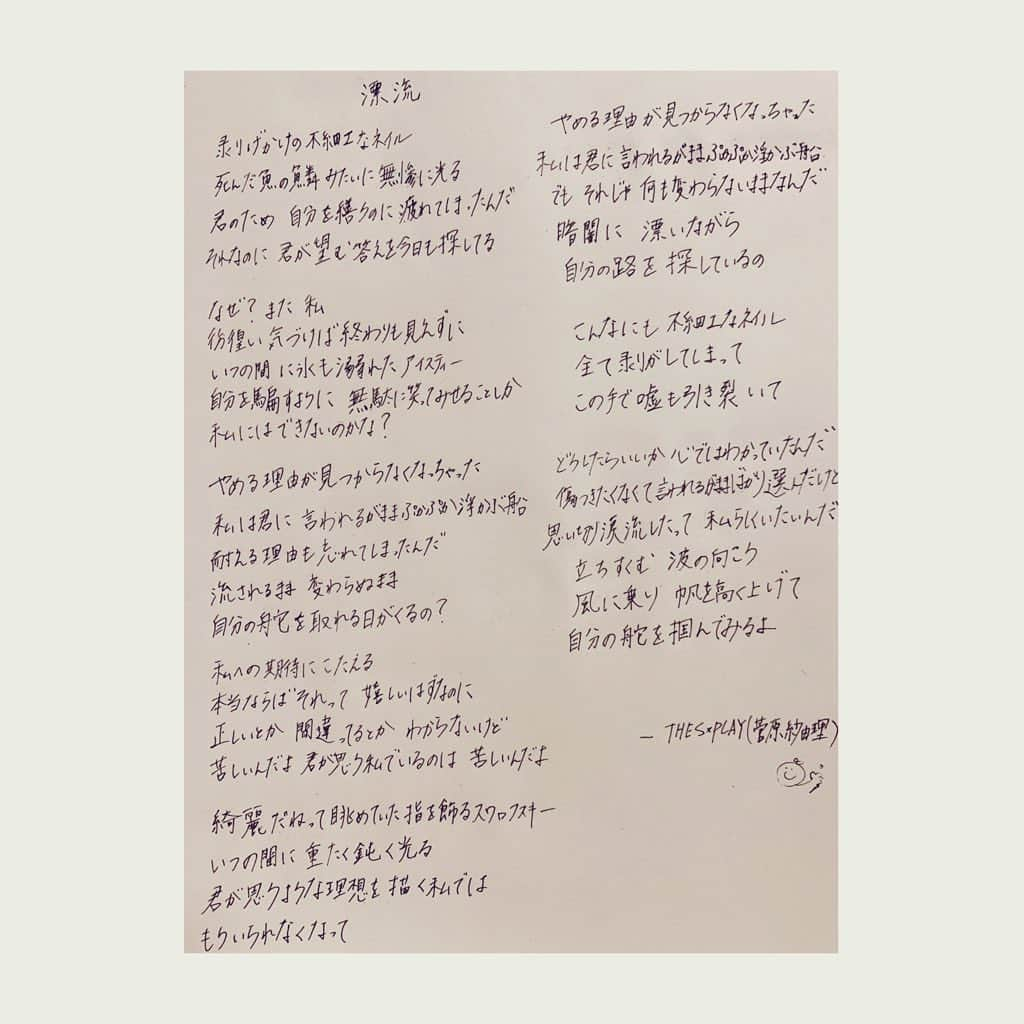 漂流
剥りげかけの不細工なネイル
死んだ魚の鱗みたいに無惨に光る
君のため 自分を繕うのに疲れてしまったんだ
それなのに 君が望む答えを今日も探してる
なぜ？また 私
彷徨い 気づけば終わりも見えずに
いつの間に氷も溺れたアイスティー
自分を騙すように 無駄に笑ってみせることしか
私にはできないのかな？
やめる理由が見つからなくなっちゃった
私は君に 言われるがままぷかぷか浮かぶ船
耐える理由も忘れてしまったんだ
流されるまま 変わらぬまま
自分の舵を取れる日がくるの？
私への期待にこたえる
本当ならばそれって 嬉しいはずなのに
正しいとか 間違ってるとか わからないけど
苦しいんだよ 君が思う私でいるのは 苦しいんだよ
綺麗だねって眺めていた指を飾るスワロフスキー
いつの間に 重たく鈍く光る
君が思うような理想を 描く私では
もういられなくなって
やめる理由が見つからなくなっちゃった
私は君に言われるがままぷかぷか浮かぶ船
でも それじゃ 何も変わらないままなんだ
暗闇に 漂いながら
自分の路を 探しているの
こんなにも 不細工なネイル
全て剥がしてしまって
この手で嘘も引き裂いて
どうしたらいいか 心ではわかっていたんだ
傷つきたくなくて言われるがままばかり選んだけど
思い切り涙流したって 私らしくいたいんだ
立ちすくむ 波の向こう
風に乗り 帆を高く上げて
自分の舵を掴んでみるよ
— THES×PLAY(菅原紗由理)